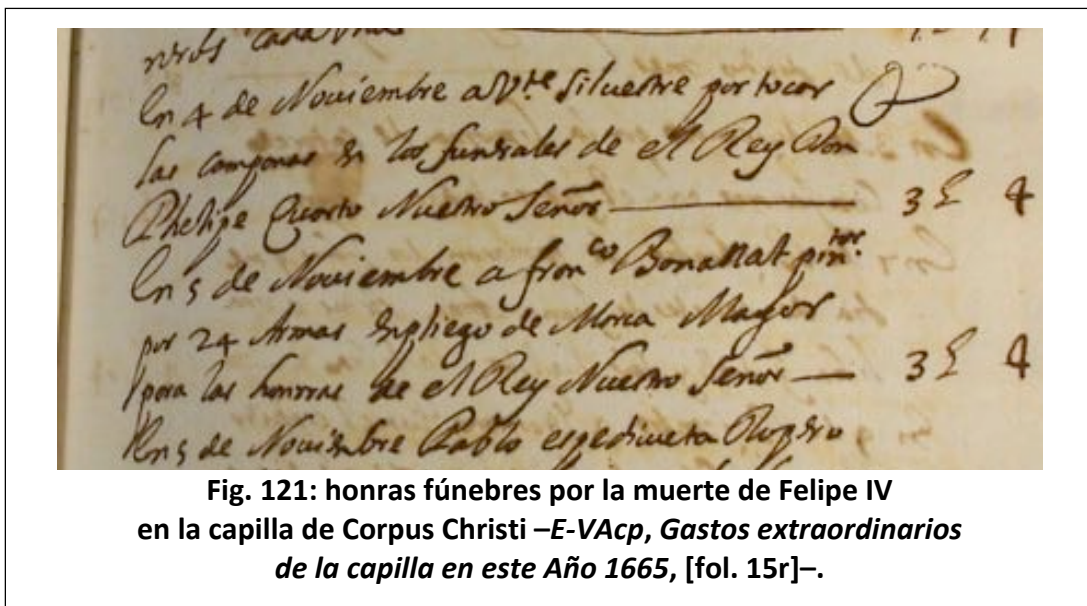 cada una
En 4 de Nouiembre a Vte Siluestre por tocar
las campanas en los funerales de el Rey Don
Phelipe Quarto Nuestro Señor 3 £ 4
En 5 de Nouiembre a franco
por 24 Armas en pliego de Marca Mayor
para las honrras de el Rey Nuestro Señor 3 £ 4
En 5 de Nouiembre Pablo
Fig. 121: honras fúnebres por la muerte de Felipe IV
en la capilla de Corpus Christi –E-VAcp, Gastos extraordinarios
de la capilla en este Año 1665, [fol. 15r]–.